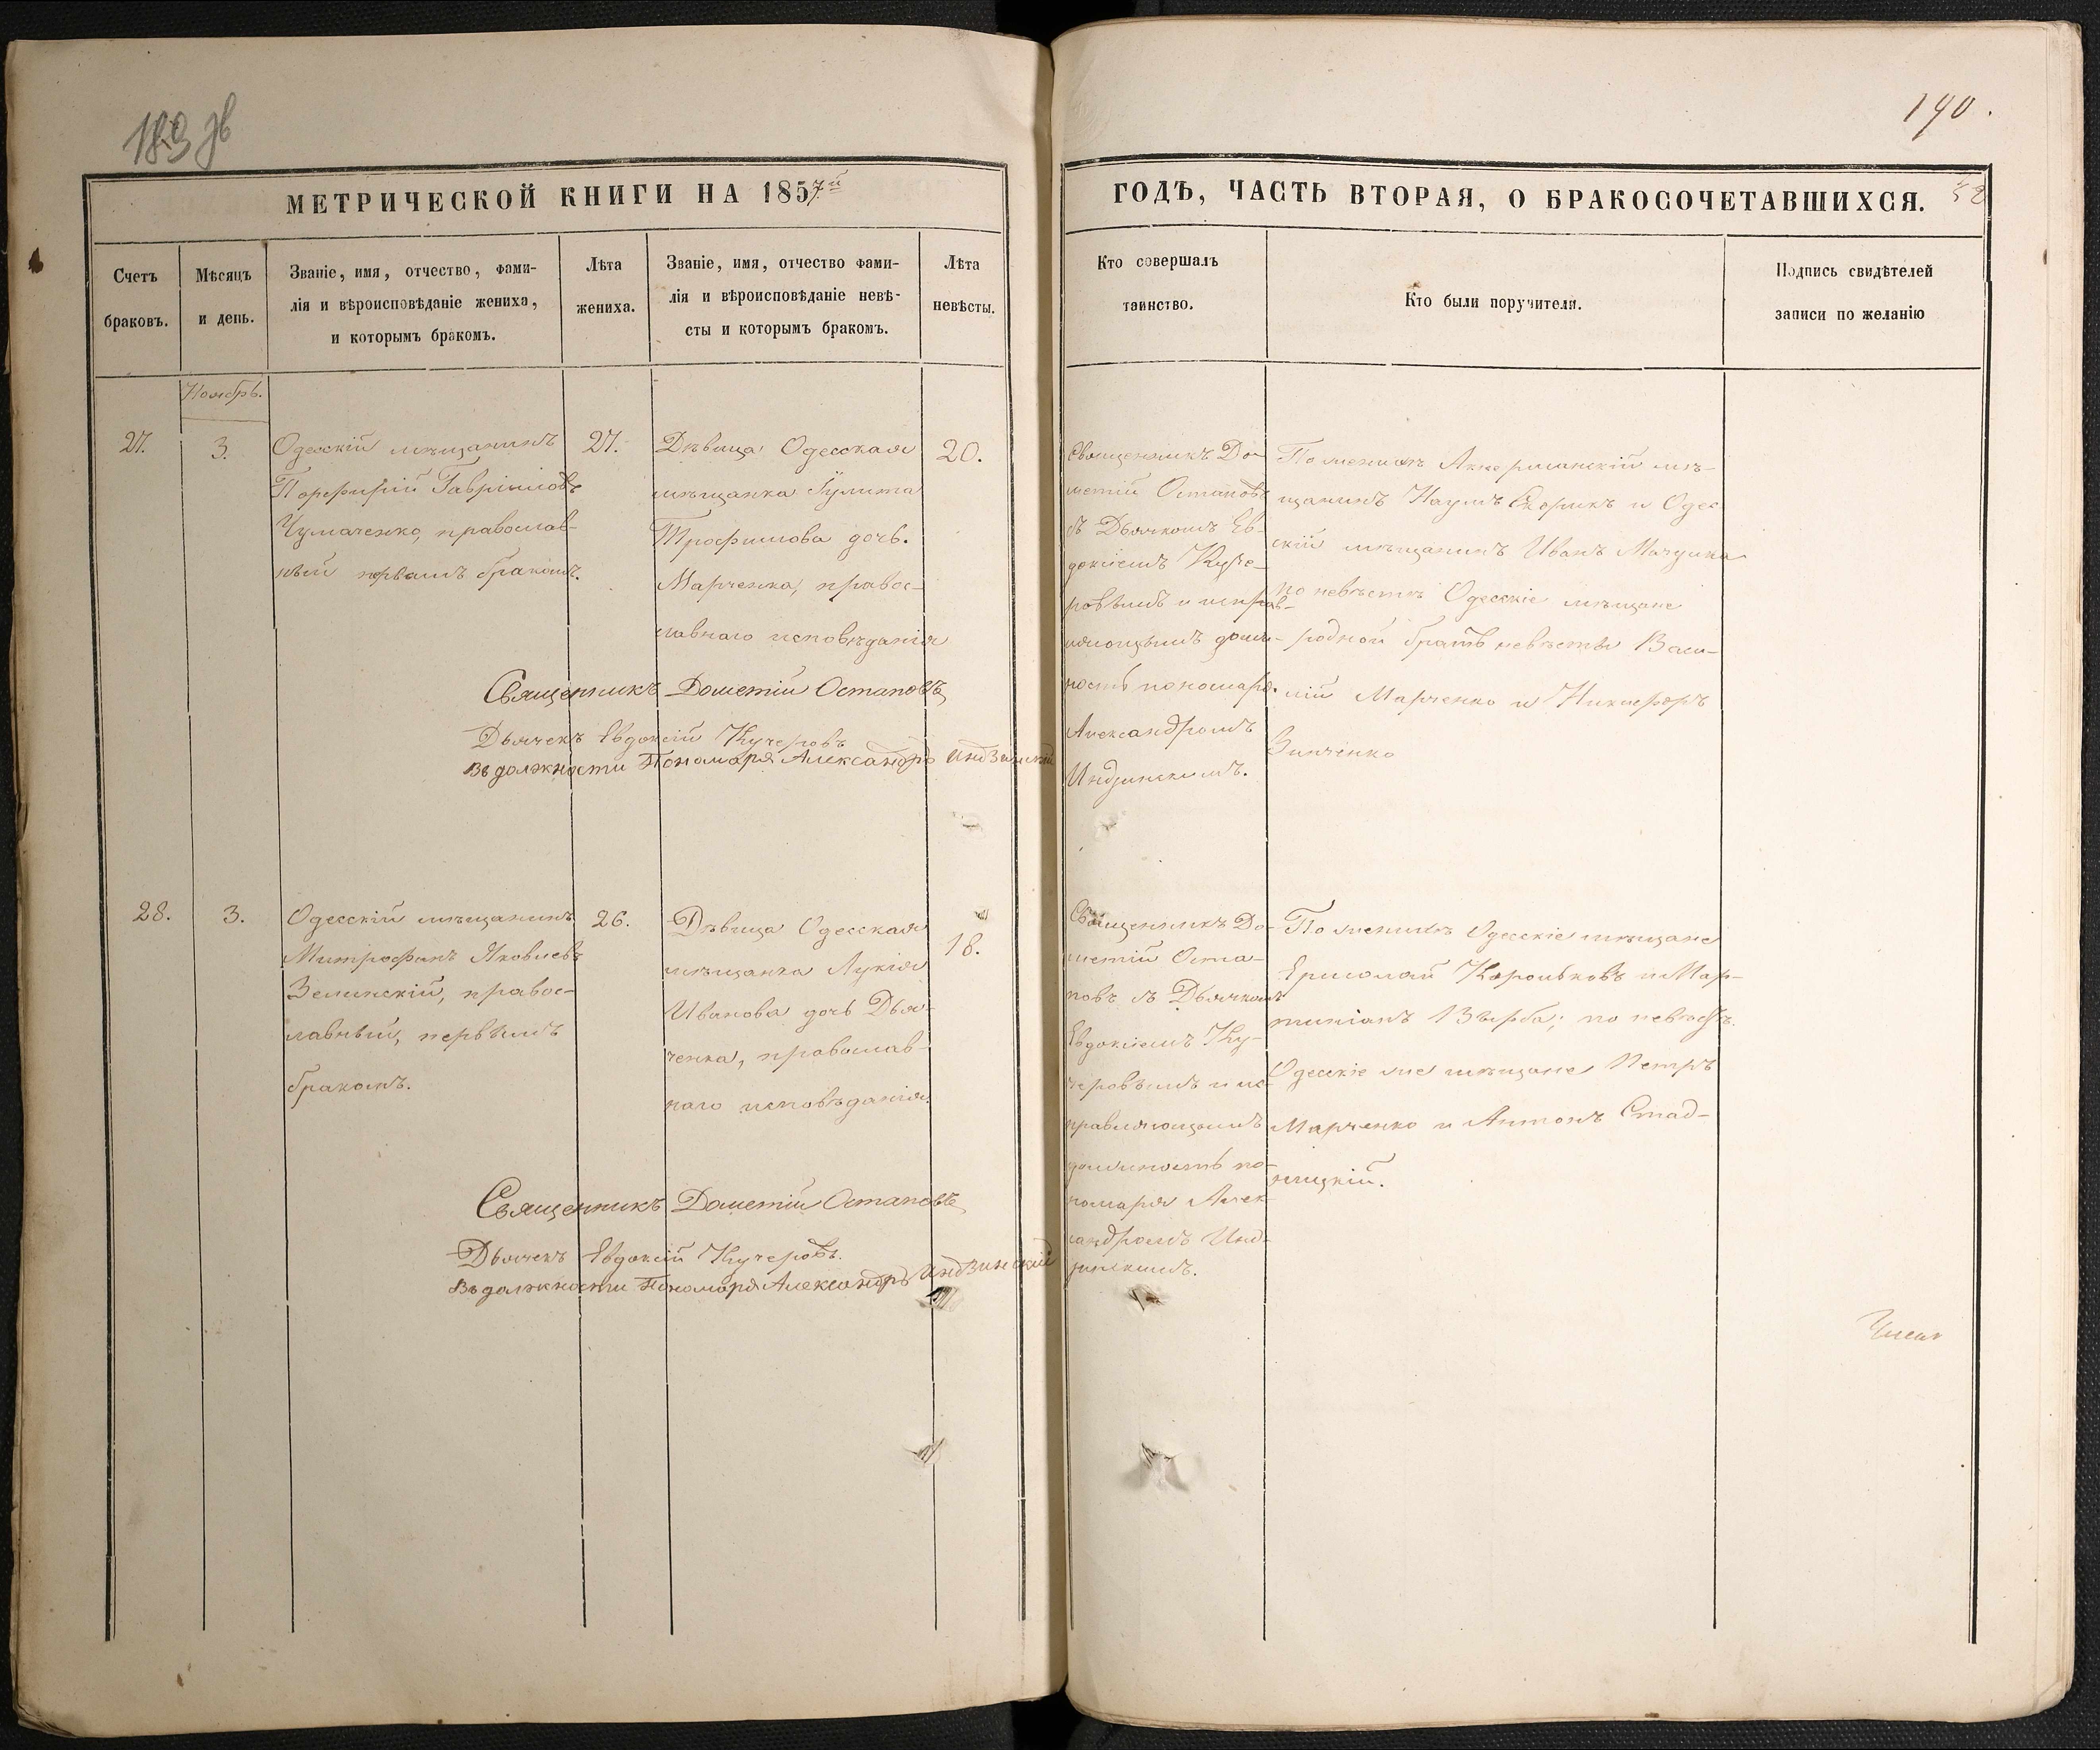 189 зв
190.
МЕТРИЧЕСКОЙ КНИГИ НА 1857й
ГОДЪ, ЧАСТЬ ВТОРАЯ, О БРАКОСОЧЕТАВШИХСЯ.
52
Счетъ
браковъ.
Мѣсяцъ
и день.
Званіе, имя, отчество, фами-
лія и вѣроисповѣданіе жениха,
и которымъ бракомъ.
Лѣта
жениха.
Званіе, имя, отчество фами-
лія и вѣроисповѣданіе невѣ-
сты и которымъ бракомъ.
Лѣта
невѣсты.
Кто совершалъ
таинство.
Кто были поручители.
Подпись свидѣтелей
записи по желанію
Ноябрь.
27.
3.
Одесскій мѣщанинъ
Порфирій Гавріиловъ
Чумаченко, православ-
ный первымъ бракомъ.
27.
Дѣвица Одесская
мѣщанка Іулита
Трофимова дочь
Марченка, правос-
лавнаго исповѣданія
20.
Священникъ До-
метій Остаповъ
съ Дьячкомъ Ев-
докіемъ Куче-
ровымъ и исправ-
ляющимъ долж-
ность пономаря
Александромъ
Индзинскимъ.
По женихѣ Аккерманскій мѣ-
щанинъ Наумъ Скорикъ и Одес-
скій мѣщанинъ Иванъ
по невѣстѣ Одесскіе мѣщане
родной братъ невѣсты Васи-
лій Марченко и Никифоръ
Зинченко
Священникъ Дометій Остаповъ
Дьячекъ Евдокій Кучеровъ
Въ должности Пономаря Александръ Индзинскій
28.
3.
Одесскій мѣщанинъ
Митрофанъ Яковлевъ
Зелинскій, правос-
лавный, первымъ
бракомъ.
26.
Дѣвица Одесская
мѣщанка Лукія
Иванова дочь Дья-
ченка, православ-
наго исповѣданія.
18.
Священникъ До-
метій Оста-
повъ съ Дьячкомъ
Евдокіемъ Ку-
черовымъ и ис-
правляющимъ
должность по-
номаря Алек-
сандромъ Инд-
зинскимъ.
По женихѣ Одесскіе мѣщане
Ермолай Корольковъ и Мар-
тиніанъ Вѣрба; по невѣстѣ
Одесскіе же мѣщане Петръ
Марченко и Антонъ Стад-
ницкій.
Священникъ Дометій Остаповъ
Дьячекъ Евдокій Кучеровъ.
Въ должности Пономаря Александръ Индзинскій